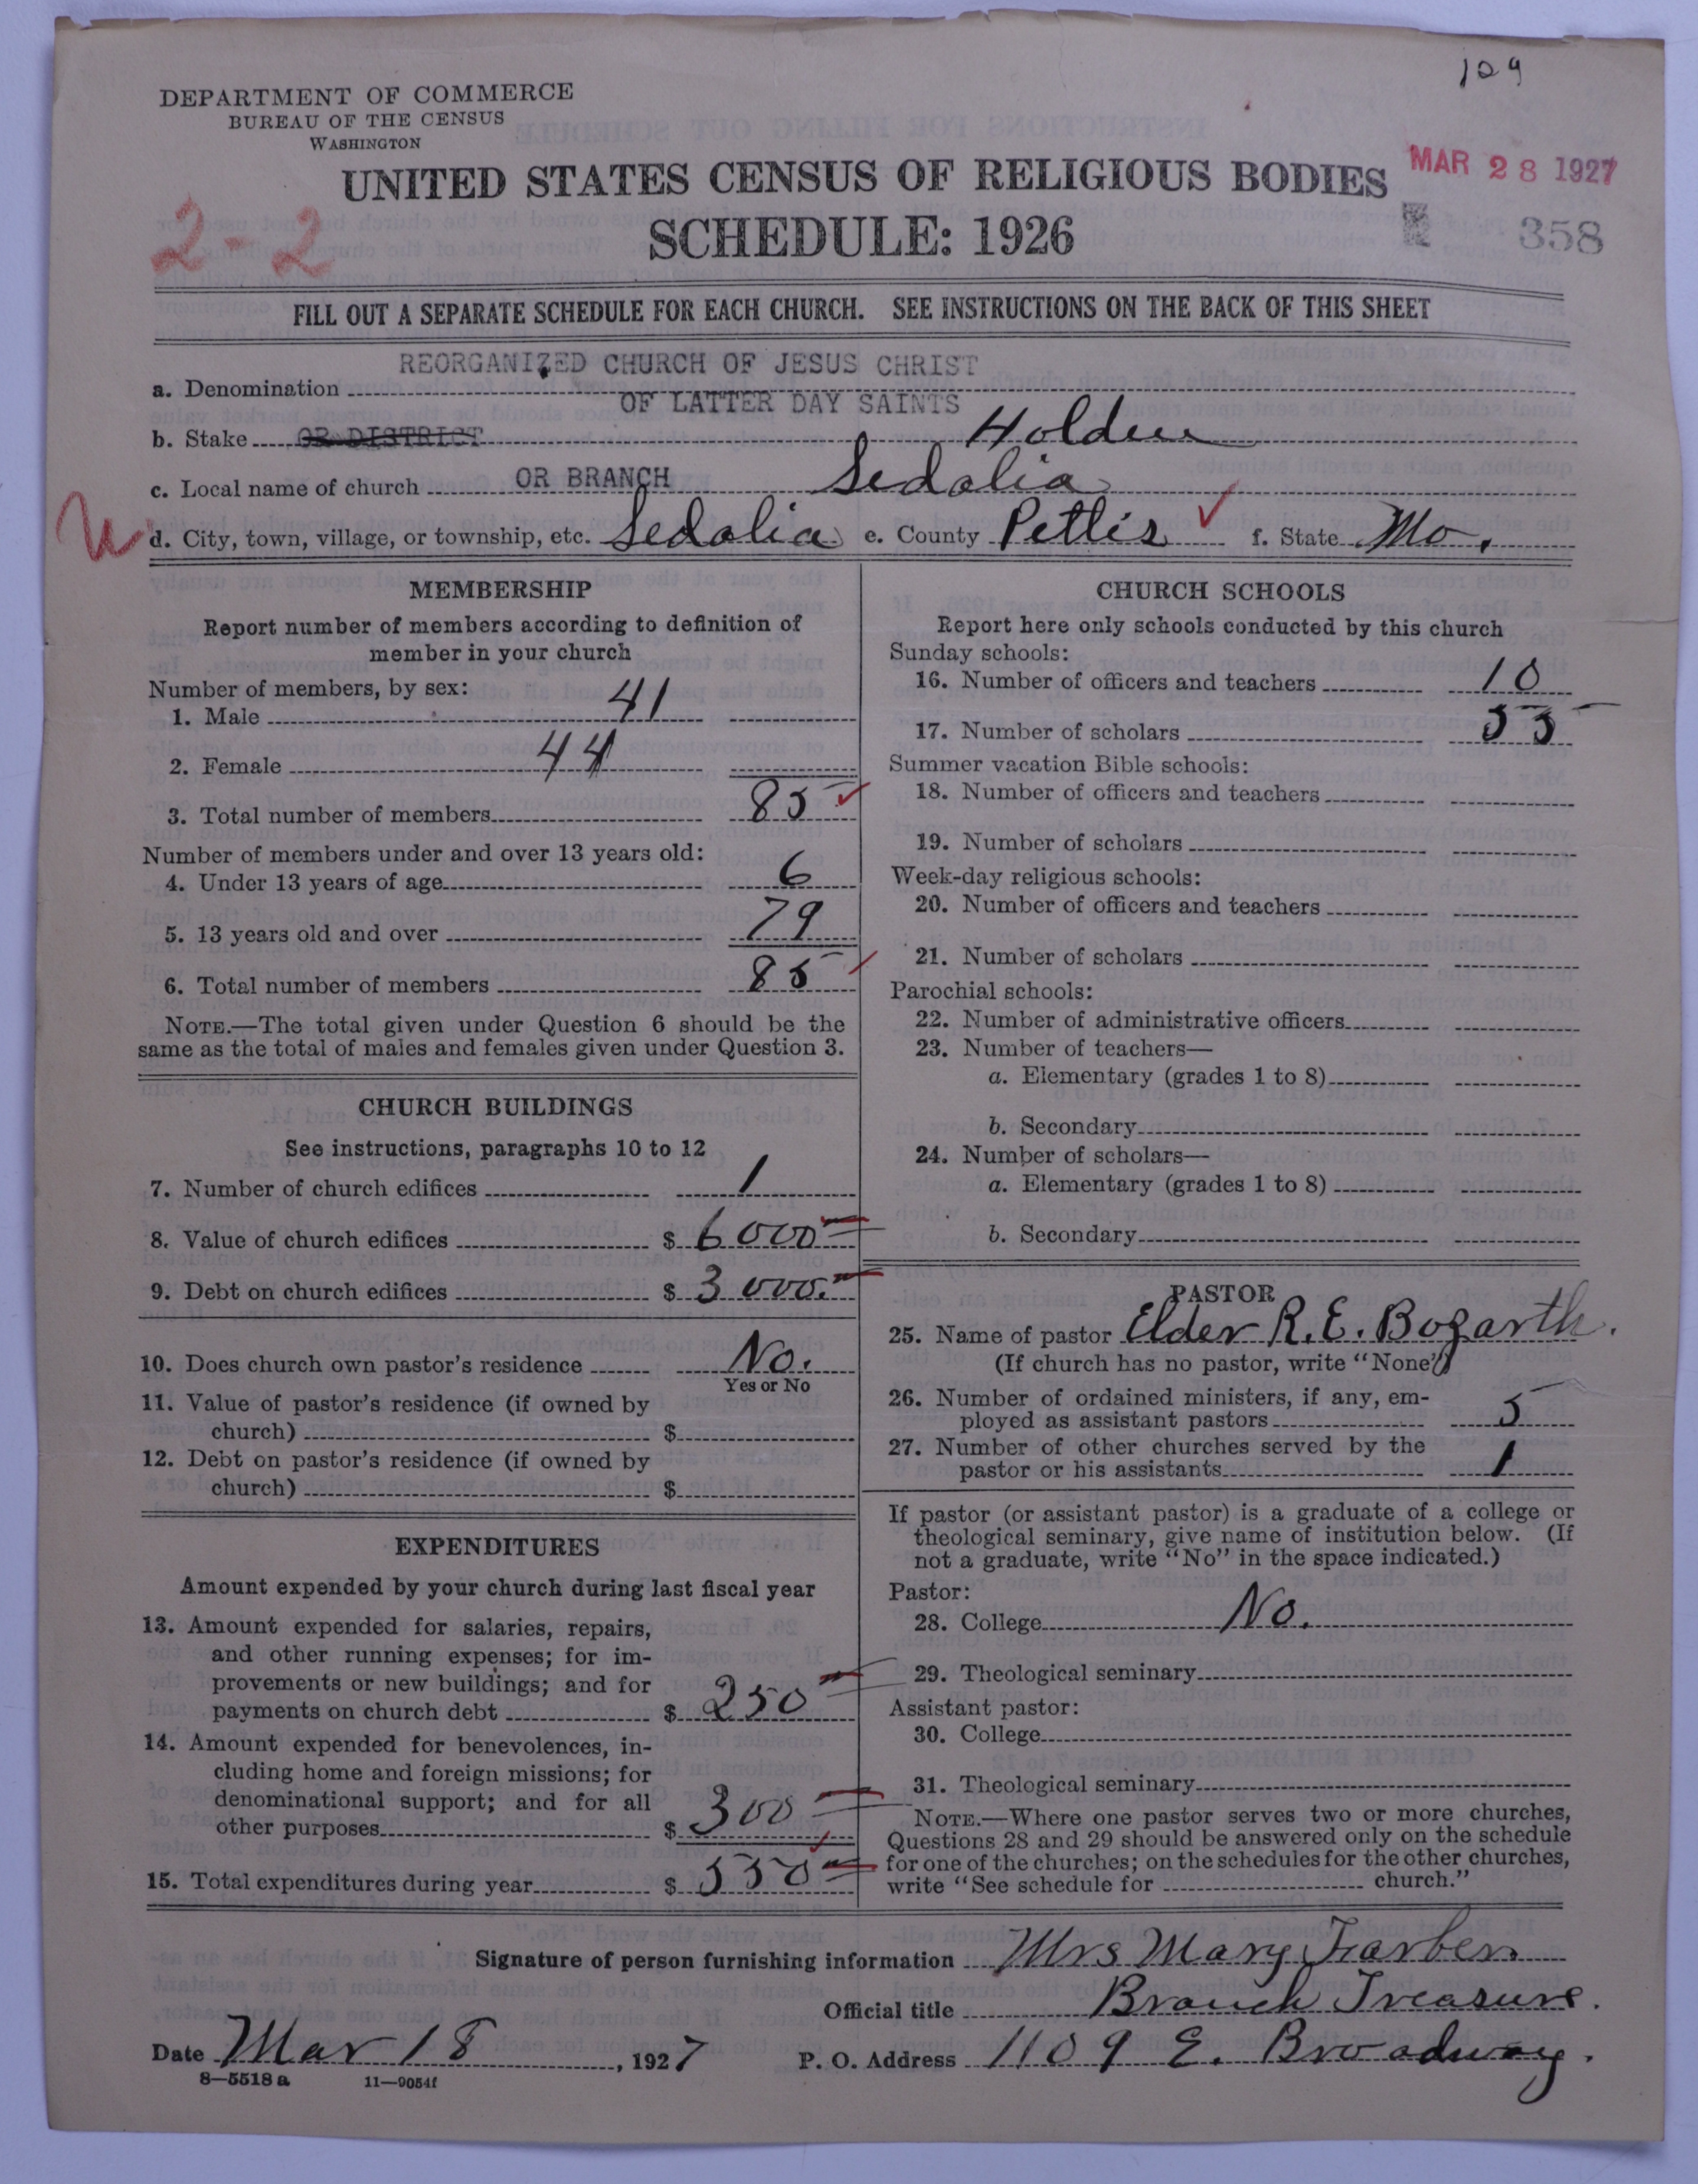 109
DEPARTMENT OF COMMERCE
BUREAU OF THE CENSUS
WASHINGTON
MAR 28 1927
UNITED STATES CENSUS OF RELIGIOUS BODIES
2-2
SCHEDULE: 1926
358
FILL OUT A SEPARATE SCHEDULE FOR EACH CHURCH. SEE INSTRUCTIONS ON THE BACK OF THIS SHEET
REORGANIZED CHURCH OF JESUS CHRIST
a. Denomination
OF LATTER DAY SAINTS
b. Stake OR DISTRICT Holden
c. Local name of church OR BRANCH Sedalia
d. City, town, village, or township, etc. Sedalia e. County Pettis f. State Mo.
MEMBERSHIP
Report number of members according to definition of
member in your church
Number of members, by sex:
1. Male 41
2. Female 44
3. Total number of members 85
Number of members under and over 13 years old:
4. Under 13 years of age 6
5. 13 years old and over 79
6. Total number of members 85
NOTE.—The total given under Question 6 should be the
same as the total of males and females given under Question 3.
CHURCH BUILDINGS
See instructions, paragraphs 10 to 12
7. Number of church edifices 1
8. Value of church edifices $ 6000
9. Debt on church edifices $ 3000.
10. Does church own pastor's residence No.
Yes or No
11. Value of pastor's residence (if owned by
church) $
12. Debt on pastor's residence (if owned by
church) $
EXPENDITURES
Amount expended by your church during last fiscal year
13. Amount expended for salaries, repairs,
and other running expenses; for im-
provements or new buildings; and for
payments on church debt $ 250
14. Amount expended for benevolences, in-
cluding home and foreign missions; for
denominational support; and for all
other purposes $ 300
15. Total expenditures during year $ 550
CHURCH SCHOOLS
Report here only schools conducted by this church
Sunday schools:
16. Number of officers and teachers 10
17. Number of scholars 55
Summer vacation Bible schools:
18. Number of officers and teachers
19. Number of scholars
Week-day religious schools:
20. Number of officers and teachers
21. Number of scholars
Parochial schools:
22. Number of administrative officers
23. Number of teachers—
a. Elementary (grades 1 to 8)
b. Secondary
24. Number of scholars—
a. Elementary (grades 1 to 8)
b. Secondary
PASTOR
25. Name of pastor Elder R. E. Bozarth.
(If church has no pastor, write "None")
26. Number of ordained ministers, if any, em-
ployed as assistant pastors 5
27. Number of other churches served by the
pastor or his assistants 1
If pastor (or assistant pastor) is a graduate of a college or
theological seminary, give name of institution below. (If
not a graduate, write "No" in the space indicated.)
Pastor:
28. College No.
29. Theological seminary
Assistant pastor:
30. College
31. Theological seminary
NOTE.—Where one pastor serves two or more churches,
Questions 28 and 29 should be answered only on the schedule
for one of the churches; on the schedules for the other churches,
write "See schedule for church."
Signature of person furnishing information Mrs Mary
Official title Branch Treasure.
Date Mar 18, 1927 P. O. Address 1109 E. Broadway.
8—5518 a 11—9054f